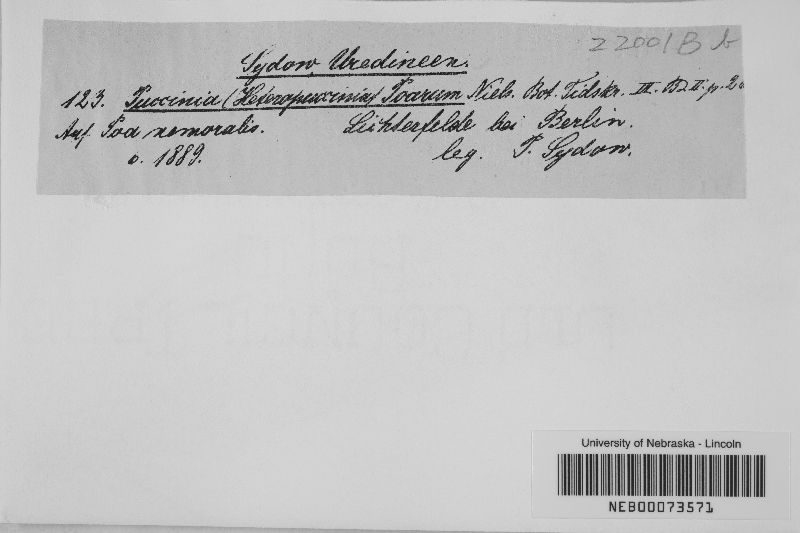 22001 B b
Sydow, Uredineen.
123. Puccinia (Heteropuccinia) Poarum Niels. Bot. Tidskr. III. Bd. II p. 2
Auf Poa nemoralis. Lichterfelde bei Berlin.
1889. leg. P. Sydow.
University of Nebraska - Lincoln
NEB00073571